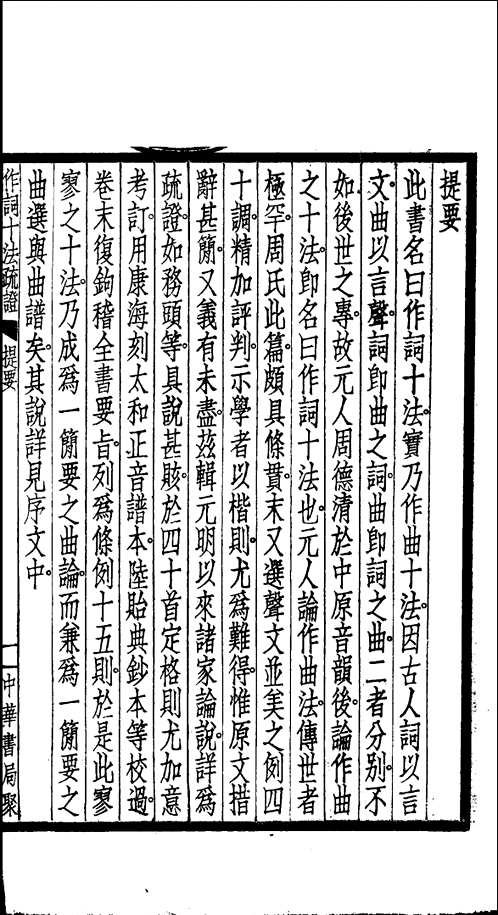 提要
此書名曰作詞十法。實乃作曲十法。因古人詞以言
文。曲以言聲。詞卽曲之詞。曲卽詞之曲。二者分別。不
如後世之專。故元人周德淸於中原音韻後。論作曲
之十法。卽名曰作詞十法也。元人論作曲法。傳世者
極罕。周氏此篇。頗具條貫。末又選聲文並美之例四
十調。精加評判。示學者以楷則。尤爲難得。惟原文措
辭甚簡。又義有未盡。茲輯元明以來諸家論說。詳爲
疏證。如務頭等。具說甚賅。於四十首定格則尤加意
考訂。用康海刻太和正音譜本。陸貽典鈔本等校過。
卷末復鉤稽全書要旨。列爲條例十五則。於是此寥
寥之十法。乃成爲一簡要之曲論。而兼爲一簡要之
曲選與曲譜矣。其說詳見序文中。
作詞十法疏證 提要 一 中華書局聚